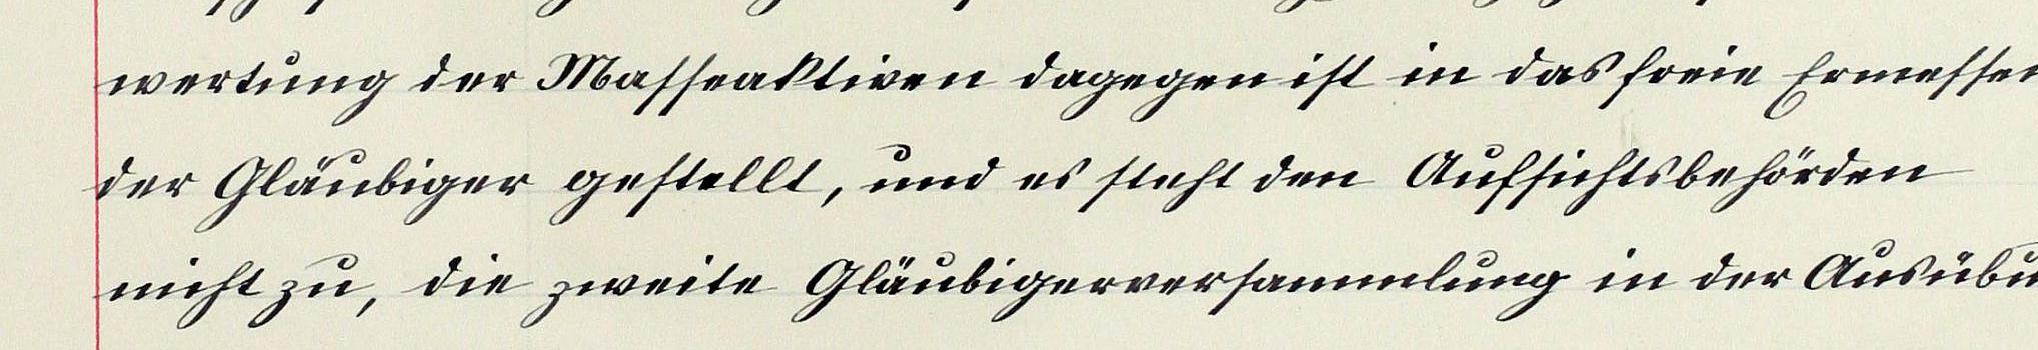 wertung der Masseaktiven dagegen ist in das freie Ermessen
der Gläubiger gestellt, und es steht den Aufsichtsbehörden
nicht zu, die zweite Gläubigerversammlung in der Ausübu